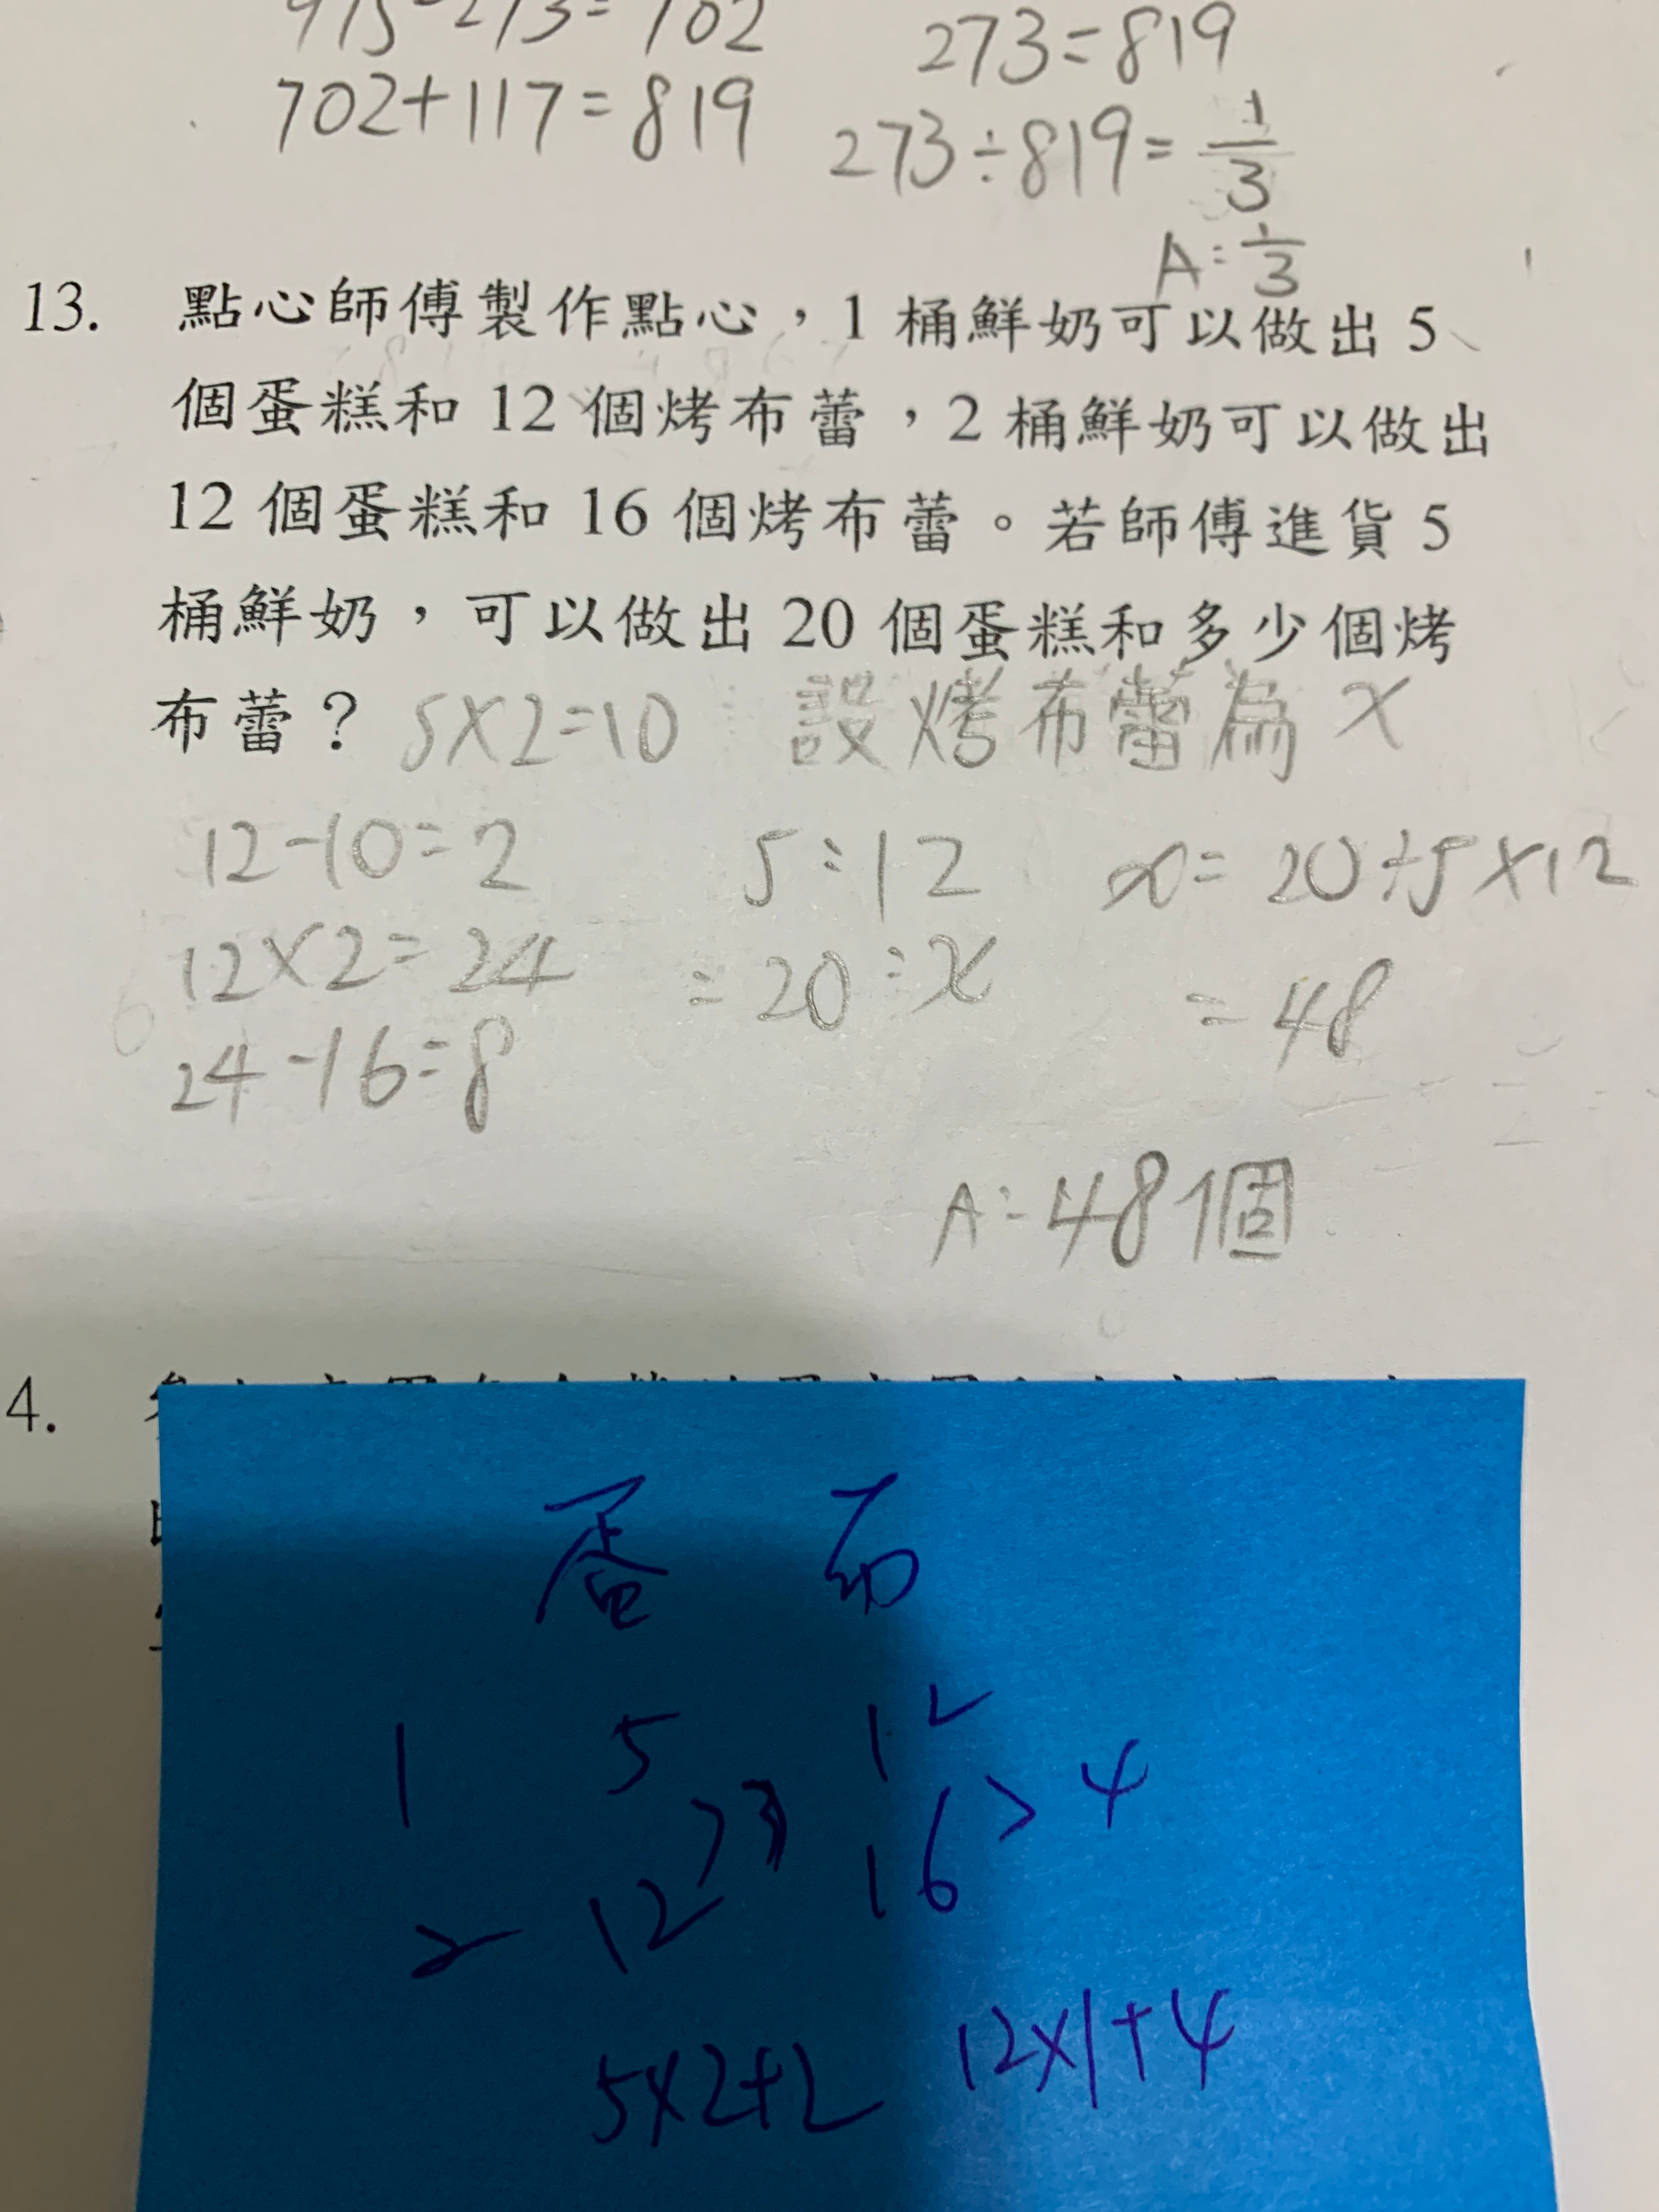 975-273=702
273=819
702+117=819
273÷819=1/3
A:1/3
13. 點心師傅製作點心，1 桶鮮奶可以做出 5
個蛋糕和 12 個烤布蕾，2 桶鮮奶可以做出
12 個蛋糕和 16 個烤布蕾。若師傅進貨 5
桶鮮奶，可以做出 20 個蛋糕和多少個烤
布蕾？ 5×2=10 設烤布蕾為 x
12-10=2 5:12 x=20÷5×12
12×2=24 =20:x =48
24-16=8
A:48個
4.
蛋 布
1 5 12
>3 >4
2 12 16
5×2+2 12×1+4